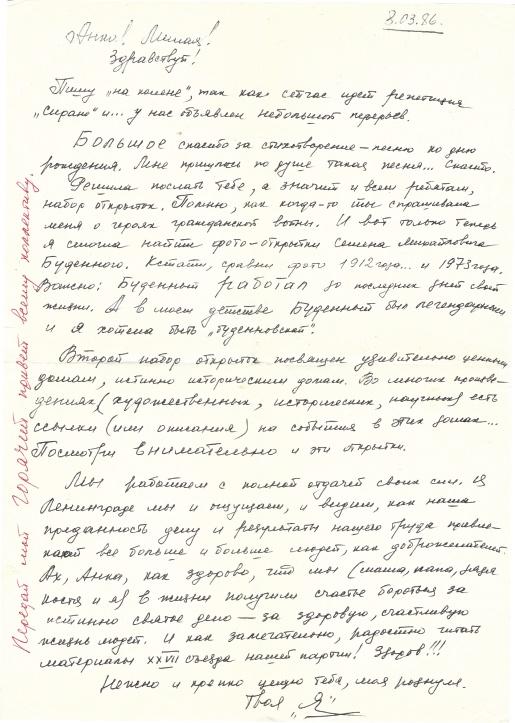 8.03.86.
Анка! Милая!
Здравствуй!
Пишу „на колене“, так как сейчас идет репетиция
„Сирано“ и... у нас объявлен небольшой перерыв.
Большое спасибо за стихотворение – песню ко дню
рождения. Мне пришлась по душе такая песня... Спасибо.
Решила послать тебе, а значит и всем ребятам,
набор открыток. Помню, как когда-то ты спрашивала
меня о героях гражданской войны. И вот только теперь
я смогла найти фото-открытки Семена Михайловича
Буденного. Кстати, сравни фото 1912 года... и 1973 года.
Важно: Буденный работал до последних дней своей
жизни. А в моем детстве Буденный был легендарным
и я хотела быть „буденновской“.
Второй набор открыток посвящен удивительно ценным
домам, истинно историческим домам. Во многих произве-
дениях (художественных, исторических, научных) есть
ссылки (или описания) на события в этих домах...
Посмотри внимательно и эти открытки.
Мы работаем с полной отдачей своих сил. И в
Ленинграде мы и ощущаем, и видим, как наша
преданность делу и результаты нашего труда привле-
кают все больше и больше людей, как доброжелателей.
Ах, Анка, как здорово, что мы (мама, папа, дядя
Костя и я) в жизни получили счастье бороться за
истинно святое дело – за здоровую, счастливую
жизнь людей. И как замечательно, радостно читать
материалы XXVII съезда нашей партии! Здоров!!!
Нежно и крепко целую тебя, моя роднуля.
Твоя „Я“
Передай мой горячий привет всему коллективу.